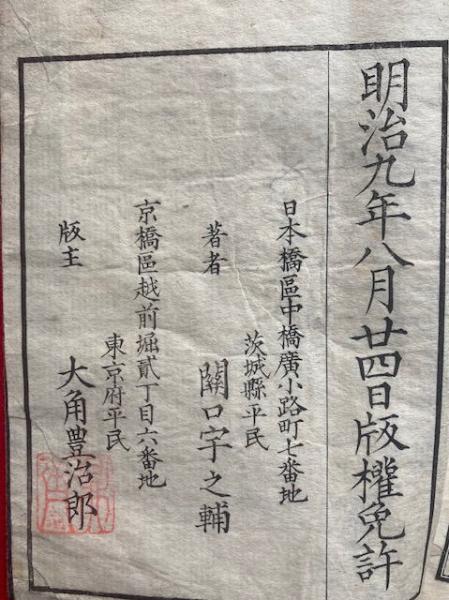 明治九年八月廿四日版權免許
日本橋區中橋廣小路町七番地
茨城縣平民
著者 關口宇之輔
京橋區越前堀貳丁目六番地
東京府平民
版主 大角豊治郎